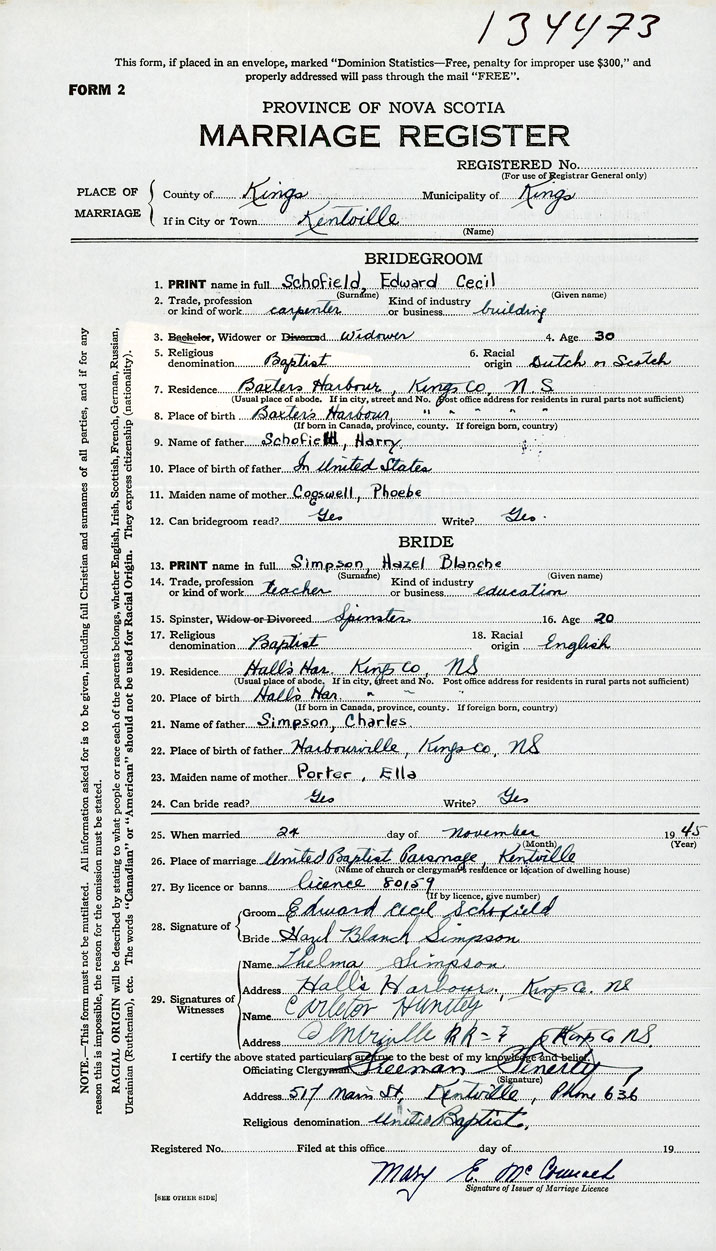 134473
This form, if placed in an envelope, marked "Dominion Statistics—Free, penalty for improper use $300," and
properly addressed will pass through the mail "FREE".
FORM 2
PROVINCE OF NOVA SCOTIA
MARRIAGE REGISTER
REGISTERED No.
(For use of Registrar General only)
PLACE OF MARRIAGE
County of Kings Municipality of Kings
If in City or Town Kentville
(Name)
BRIDEGROOM
1. PRINT name in full Schofield, Edward Cecil
(Surname) (Given name)
2. Trade, profession or kind of work carpenter Kind of industry or business building
3. Bachelor, Widower or Divorced Widower 4. Age 30
5. Religious denomination Baptist 6. Racial origin Dutch or Scotch
7. Residence Baxters Harbour, Kings Co, N.S
(Usual place of abode. If in city, street and No. Post office address for residents in rural parts not sufficient)
8. Place of birth Baxter's Harbour, " " " "
(If born in Canada, province, county. If foreign born, country)
9. Name of father Schofield, Harry
10. Place of birth of father In United States
11. Maiden name of mother Cogswell, Phoebe
12. Can bridegroom read? Yes Write? Yes.
BRIDE
13. PRINT name in full Simpson, Hazel Blanche
(Surname) (Given name)
14. Trade, profession or kind of work teacher Kind of industry or business education
15. Spinster, Widow or Divorced Spinster 16. Age 20
17. Religious denomination Baptist 18. Racial origin English
19. Residence Hall's Har. Kings Co, NS
(Usual place of abode. If in city, street and No. Post office address for residents in rural parts not sufficient)
20. Place of birth Hall's Har. " " "
(If born in Canada, province, county. If foreign born, country)
21. Name of father Simpson, Charles
22. Place of birth of father Harbourville, Kings Co, NS
23. Maiden name of mother Porter, Ella
24. Can bride read? Yes Write? Yes
25. When married 24 day of November 1945
(Month) (Year)
26. Place of marriage United Baptist Parsonage, Kentville
(Name of church or clergyman's residence or location of dwelling house)
27. By licence or banns licence 80159
(If by licence, give number)
28. Signature of
Groom Edward Cecil Schofield
Bride Hazel Blanch Simpson
29. Signatures of Witnesses
Name Thelma Simpson
Address Hall's Harbour, Kings Co. NS
Name Carleton Huntley
Address RR Kings Co NS.
I certify the above stated particulars are true to the best of my knowledge and belief.
Officiating Clergyman Freeman Fenerty
(Signature)
Address 517 Main St, Kentville, Phone 636
Religious denomination United Baptist.
Registered No. Filed at this office day of 19
Mary E. McCormack
Signature of Issuer of Marriage Licence
[SEE OTHER SIDE]
NOTE.—This form must not be mutilated. All information asked for is to be given, including full Christian and surnames of all parties, and if for any
reason this is impossible, the reason for the omission must be stated.
RACIAL ORIGIN will be described by stating to what people or race each of the parents belongs, whether English, Irish, Scottish, French, German, Russian,
Ukrainian (Ruthenian), etc. The words "Canadian" or "American" should not be used for Racial Origin. They express citizenship (nationality).